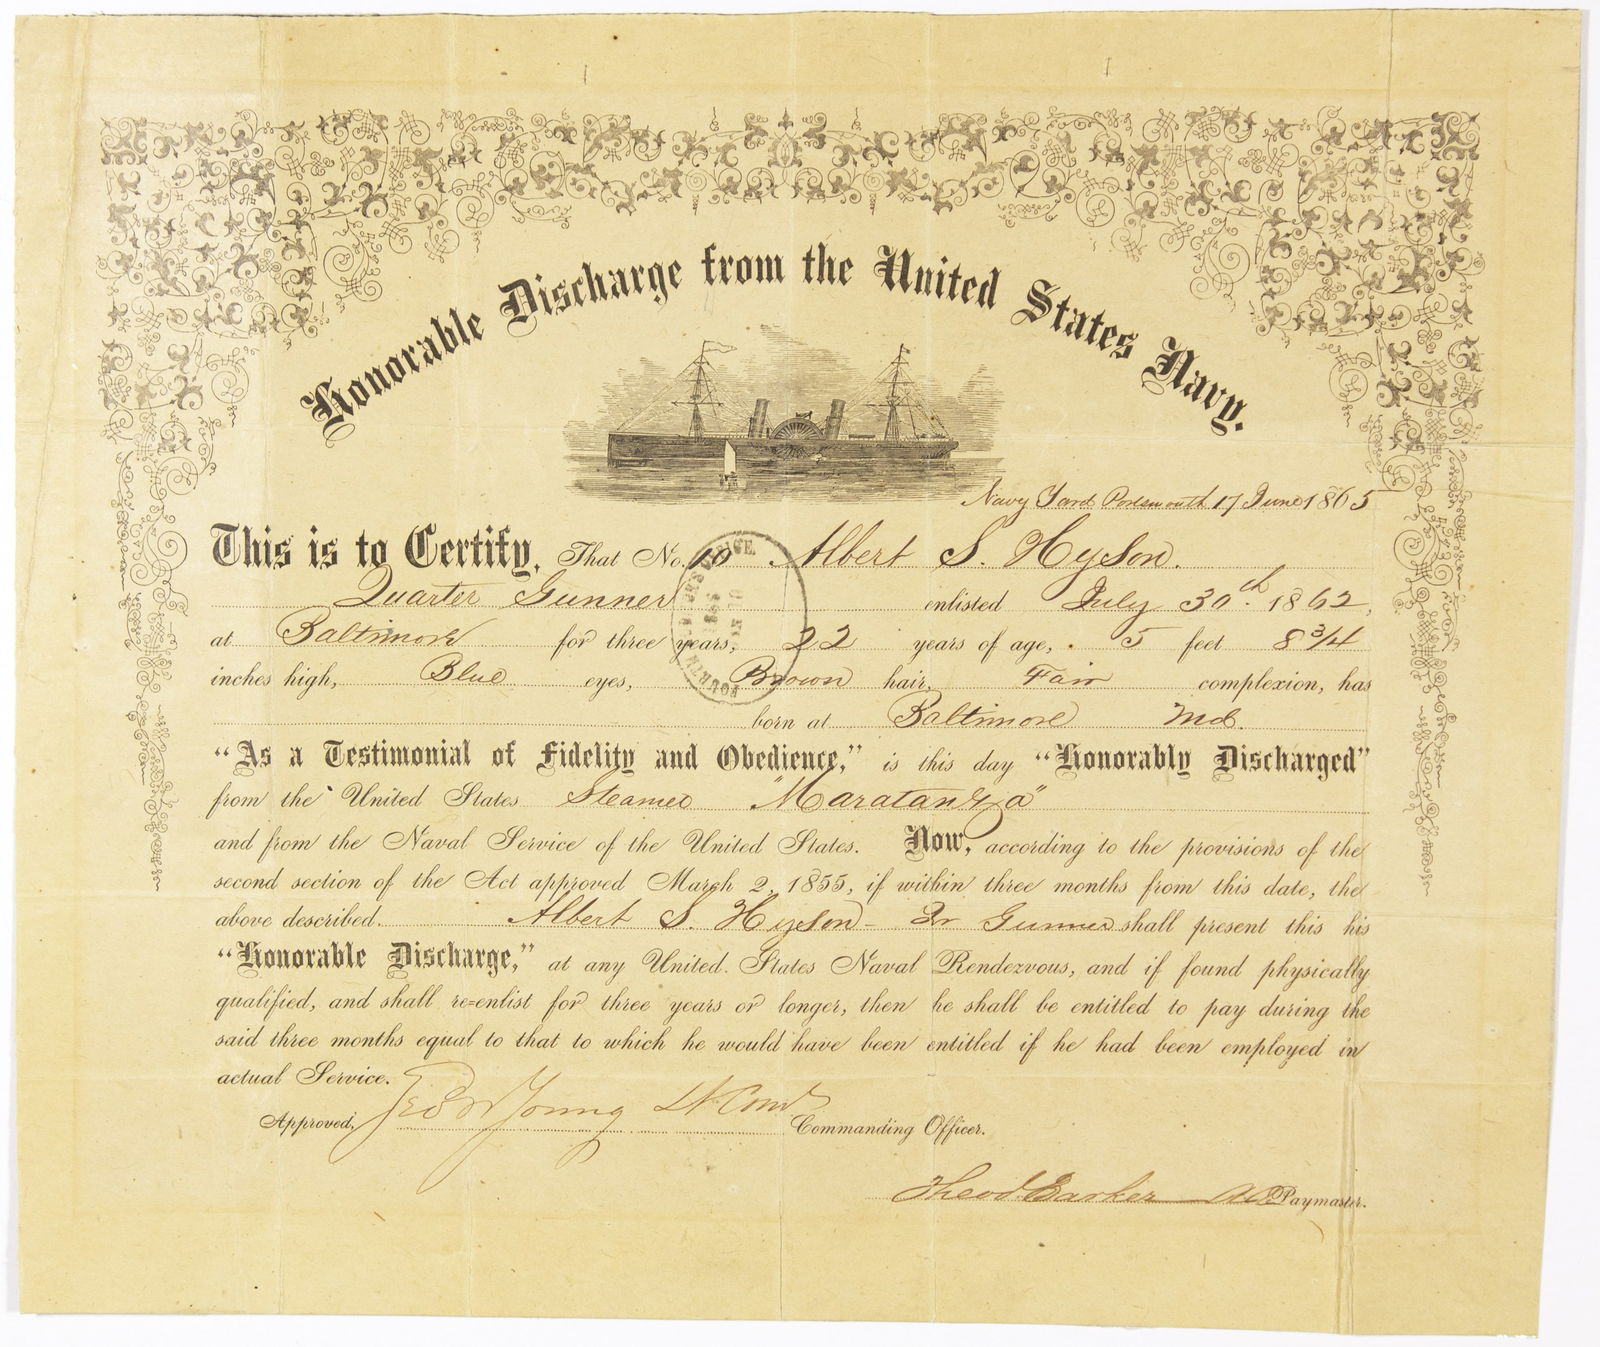 Honorable Discharge from the United States Navy.
Navy Yard Portsmouth 17 June 1865
This is to Certify, That No. 10 Albert S. Hyson.
Quarter Gunner enlisted July 30th. 1862,
at Baltimore for three years, 22 years of age, 5 feet 8 3/4
inches high, Blue eyes, Brown hair, Fair complexion, has
born at Baltimore Md.
"As a Testimonial of Fidelity and Obedience," is this day "Honorably Discharged"
from the United States Steamer "Maratanza"
and from the Naval Service of the United States. Now, according to the provisions of the
second section of the Act approved March 2, 1855, if within three months from this date, the
above described. Albert S. Hyson - Qr Gunner shall present this his
"Honorable Discharge," at any United States Naval Rendezvous, and if found physically
qualified, and shall re=enlist for three years or longer, then he shall be entitled to pay during the
said three months equal to that to which he would have been entitled if he had been employed in
actual Service.
Approved, Geo W Young Commanding Officer.
Theod Barker Paymaster.
FOURTH